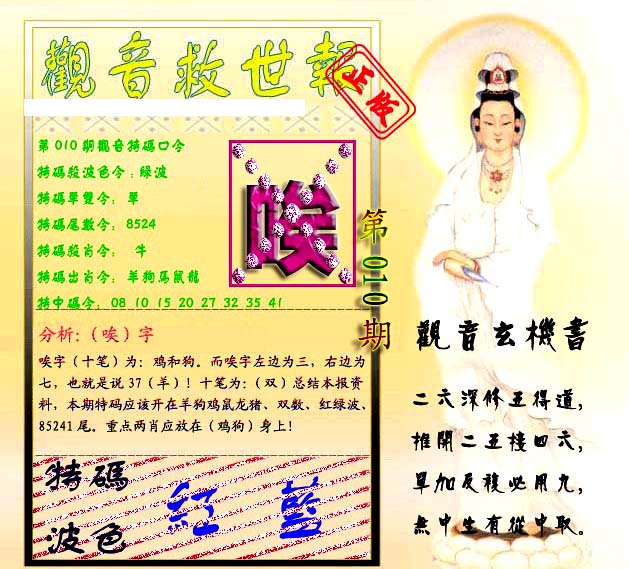 觀音救世報
正版
第010期觀音特碼口令
特碼殺波色令：綠波
特碼單雙令： 單
特碼尾數令： 8524
特碼殺肖令： 牛
特碼出肖令： 羊狗馬鼠龍
特中碼令： 08 10 15 20 27 32 35 41
唉
第010期
分析：（唉）字
唉字（十笔）为：鸡和狗。而唉字左边为三，右边为
七，也就是说 37（羊）！十笔为：（双）总结本报资
料，本期特码应该开在羊狗鸡鼠龙猪、双数、红绿波、
85241 尾。重点两肖应放在（鸡狗）身上！
特碼
波色
紅 藍
觀音玄機書
二六深修五得道，
推開二五樓四六，
單加及複必用九，
無中生有從中取。